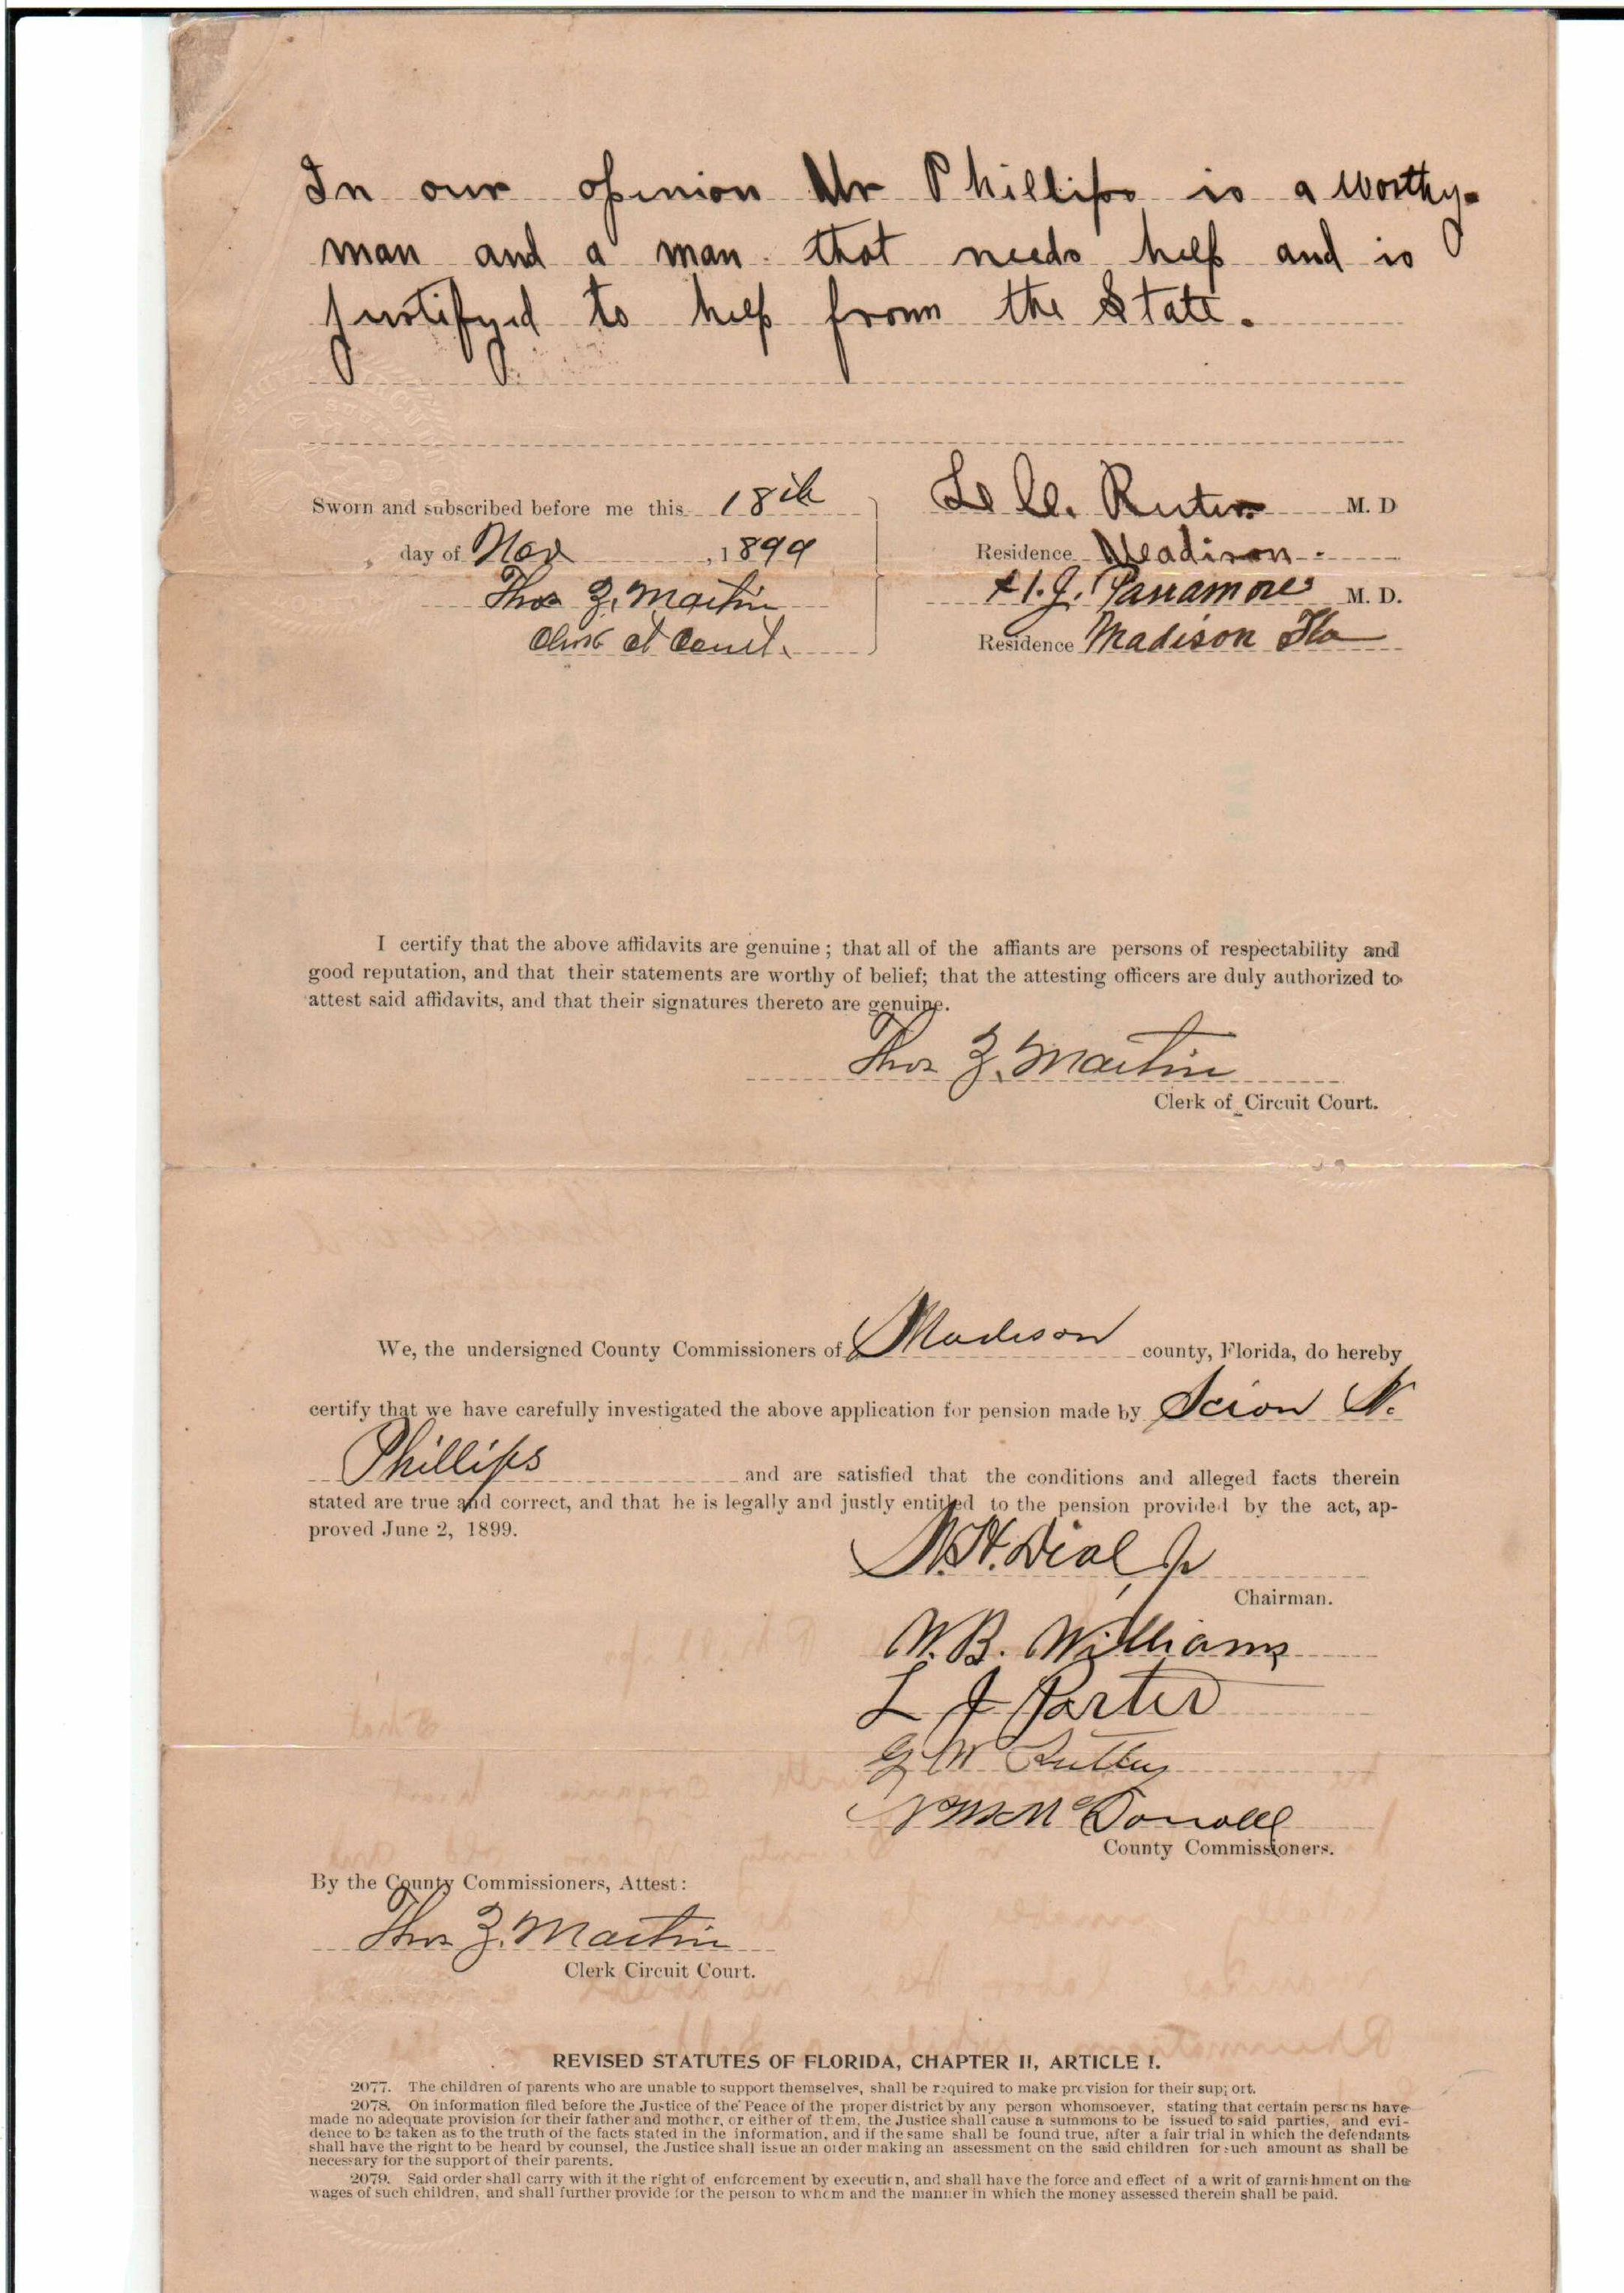 In our opinion Mr Phillips is a worthy
man and a man that needs help and is
justifyed to help from the State.
Sworn and subscribed before me this 18th
day of Nov, 1899
Thos Z. Martin
Clerk Ct Court.
M. D
Residence Madison
Parramore M. D.
Residence Madison Fla
I certify that the above affidavits are genuine; that all of the affiants are persons of respectability and
good reputation, and that their statements are worthy of belief; that the attesting officers are duly authorized to
attest said affidavits, and that their signatures thereto are genuine.
Thos Z. Martin
Clerk of Circuit Court.
We, the undersigned County Commissioners of Madison county, Florida, do hereby
certify that we have carefully investigated the above application for pension made by Scion N.
Phillips and are satisfied that the conditions and alleged facts therein
stated are true and correct, and that he is legally and justly entitled to the pension provided by the act, ap-
proved June 2, 1899.
Dial Jr
Chairman.
W. B. Williams
L J Porter
G W
McDonall
County Commissioners.
By the County Commissioners, Attest:
Thos Z. Martin
Clerk Circuit Court.
REVISED STATUTES OF FLORIDA, CHAPTER II, ARTICLE I.
2077. The children of parents who are unable to support themselves, shall be required to make provision for their support.
2078. On information filed before the Justice of the Peace of the proper district by any person whomsoever, stating that certain persons have
made no adequate provision for their father and mother, or either of them, the Justice shall cause a summons to be issued to said parties, and evi-
dence to be taken as to the truth of the facts stated in the information, and if the same shall be found true, after a fair trial in which the defendants
shall have the right to be heard by counsel, the Justice shall issue an order making an assessment on the said children for such amount as shall be
necessary for the support of their parents.
2079. Said order shall carry with it the right of enforcement by execution, and shall have the force and effect of a writ of garnishment on the
wages of such children, and shall further provide for the person to whom and the manner in which the money assessed therein shall be paid.